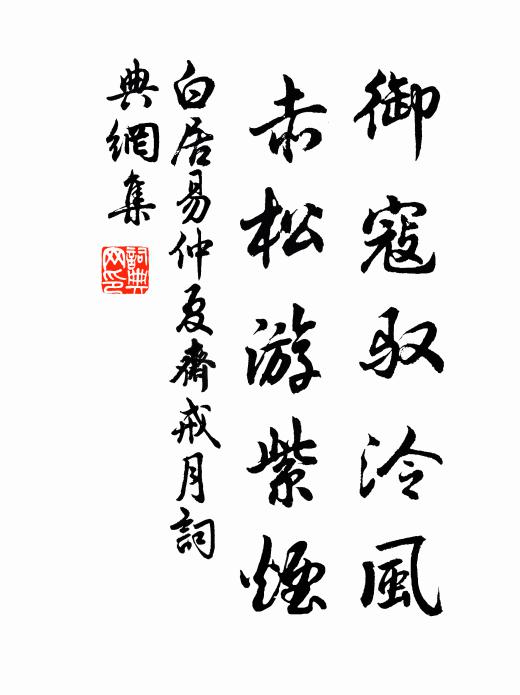 御寇驭泠风
赤松游紫煙
白居易仲夏齋戒月詞
典網集
詞典网印